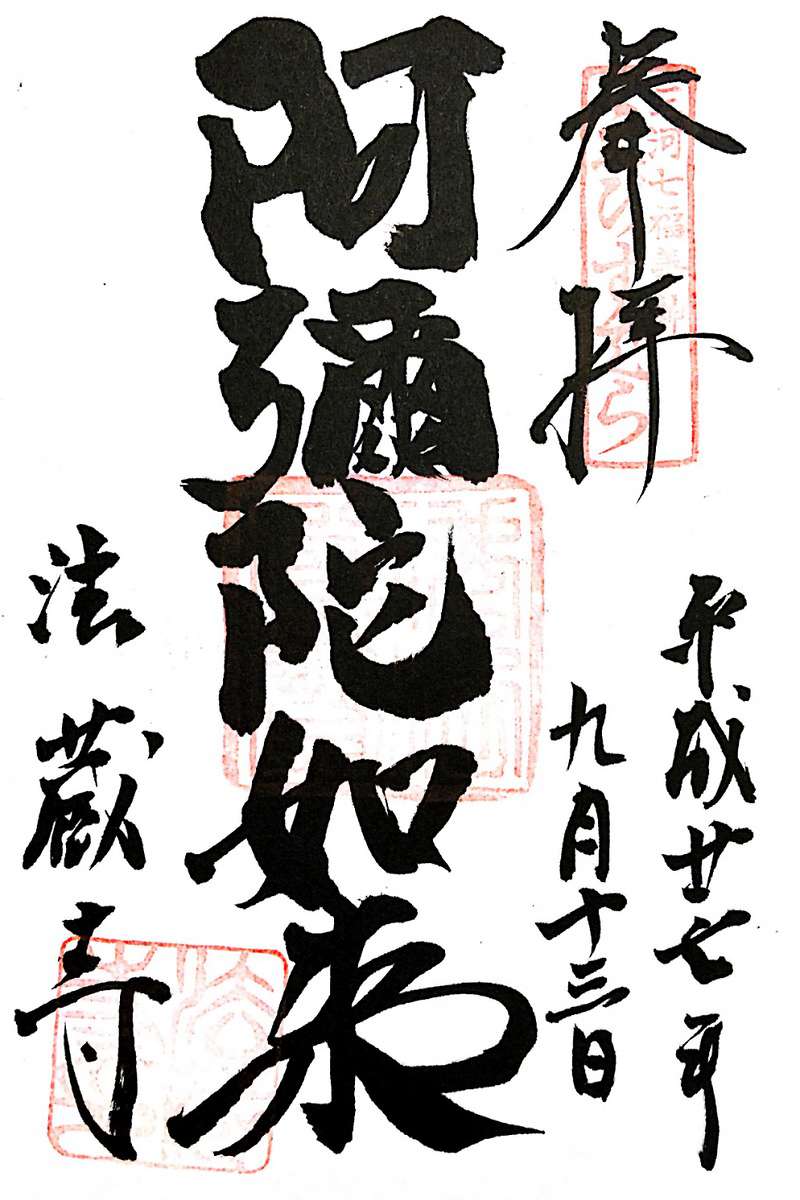 奉拝
三河七福
平成廿七年
九月十三日
阿彌陀如来
法蔵寺